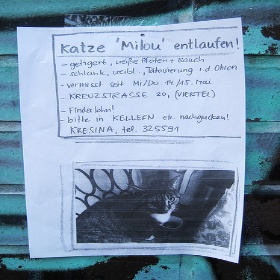 Katze 'Milou' entlaufen!
- getigert, weiße Pfoten + Bauch
- schlank, weibl., Tätowierung i.d. Ohren
- vermisst seit Mi/Do 14./15. Mai
KREUZSTRASSE 20, (VIERTEL)
- Finderlohn!
- bitte in KELLERN etc. nachgucken!
KRESINA, tel. 325591